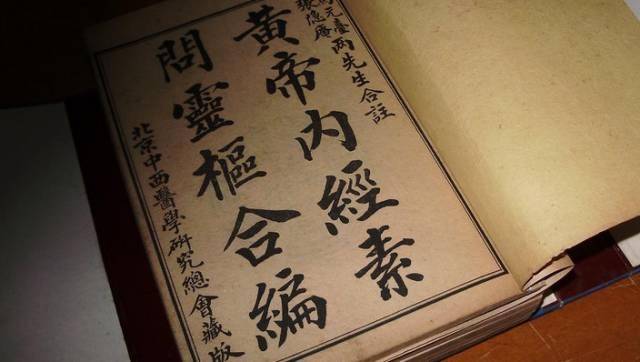 元臺
張隱庵
两先生合註
黃帝內經素
問靈樞合編
北京中西醫學研究總會藏版